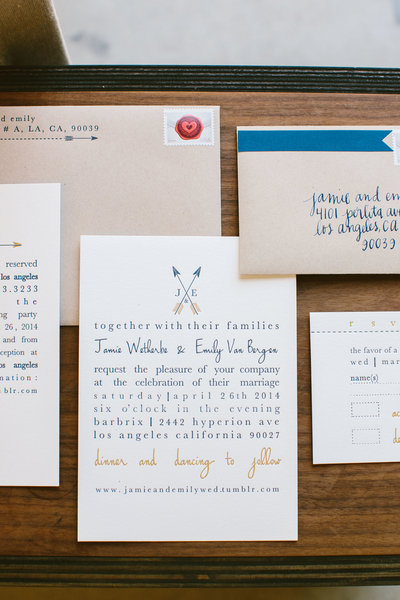 d emily
# A, LA, CA, 90039
jamie and em
4101 perlita av
los angeles, CA
90039
reserved
los angeles
3.3233
the
ing party
26, 2014
and from
ception at
los angeles
mation :
mblr.com
J E
&
together with their families
Jamie Wetherbe & Emily Van Bergen
request the pleasure of your company
at the celebration of their marriage
saturday | april 26th 2014
six o'clock in the evening
barbrix | 2442 hyperion ave
los angeles california 90027
dinner and dancing to follow
www.jamieandemilywed.tumblr.com
r s v
the favor of a
wed | mar
name(s)
ac
de